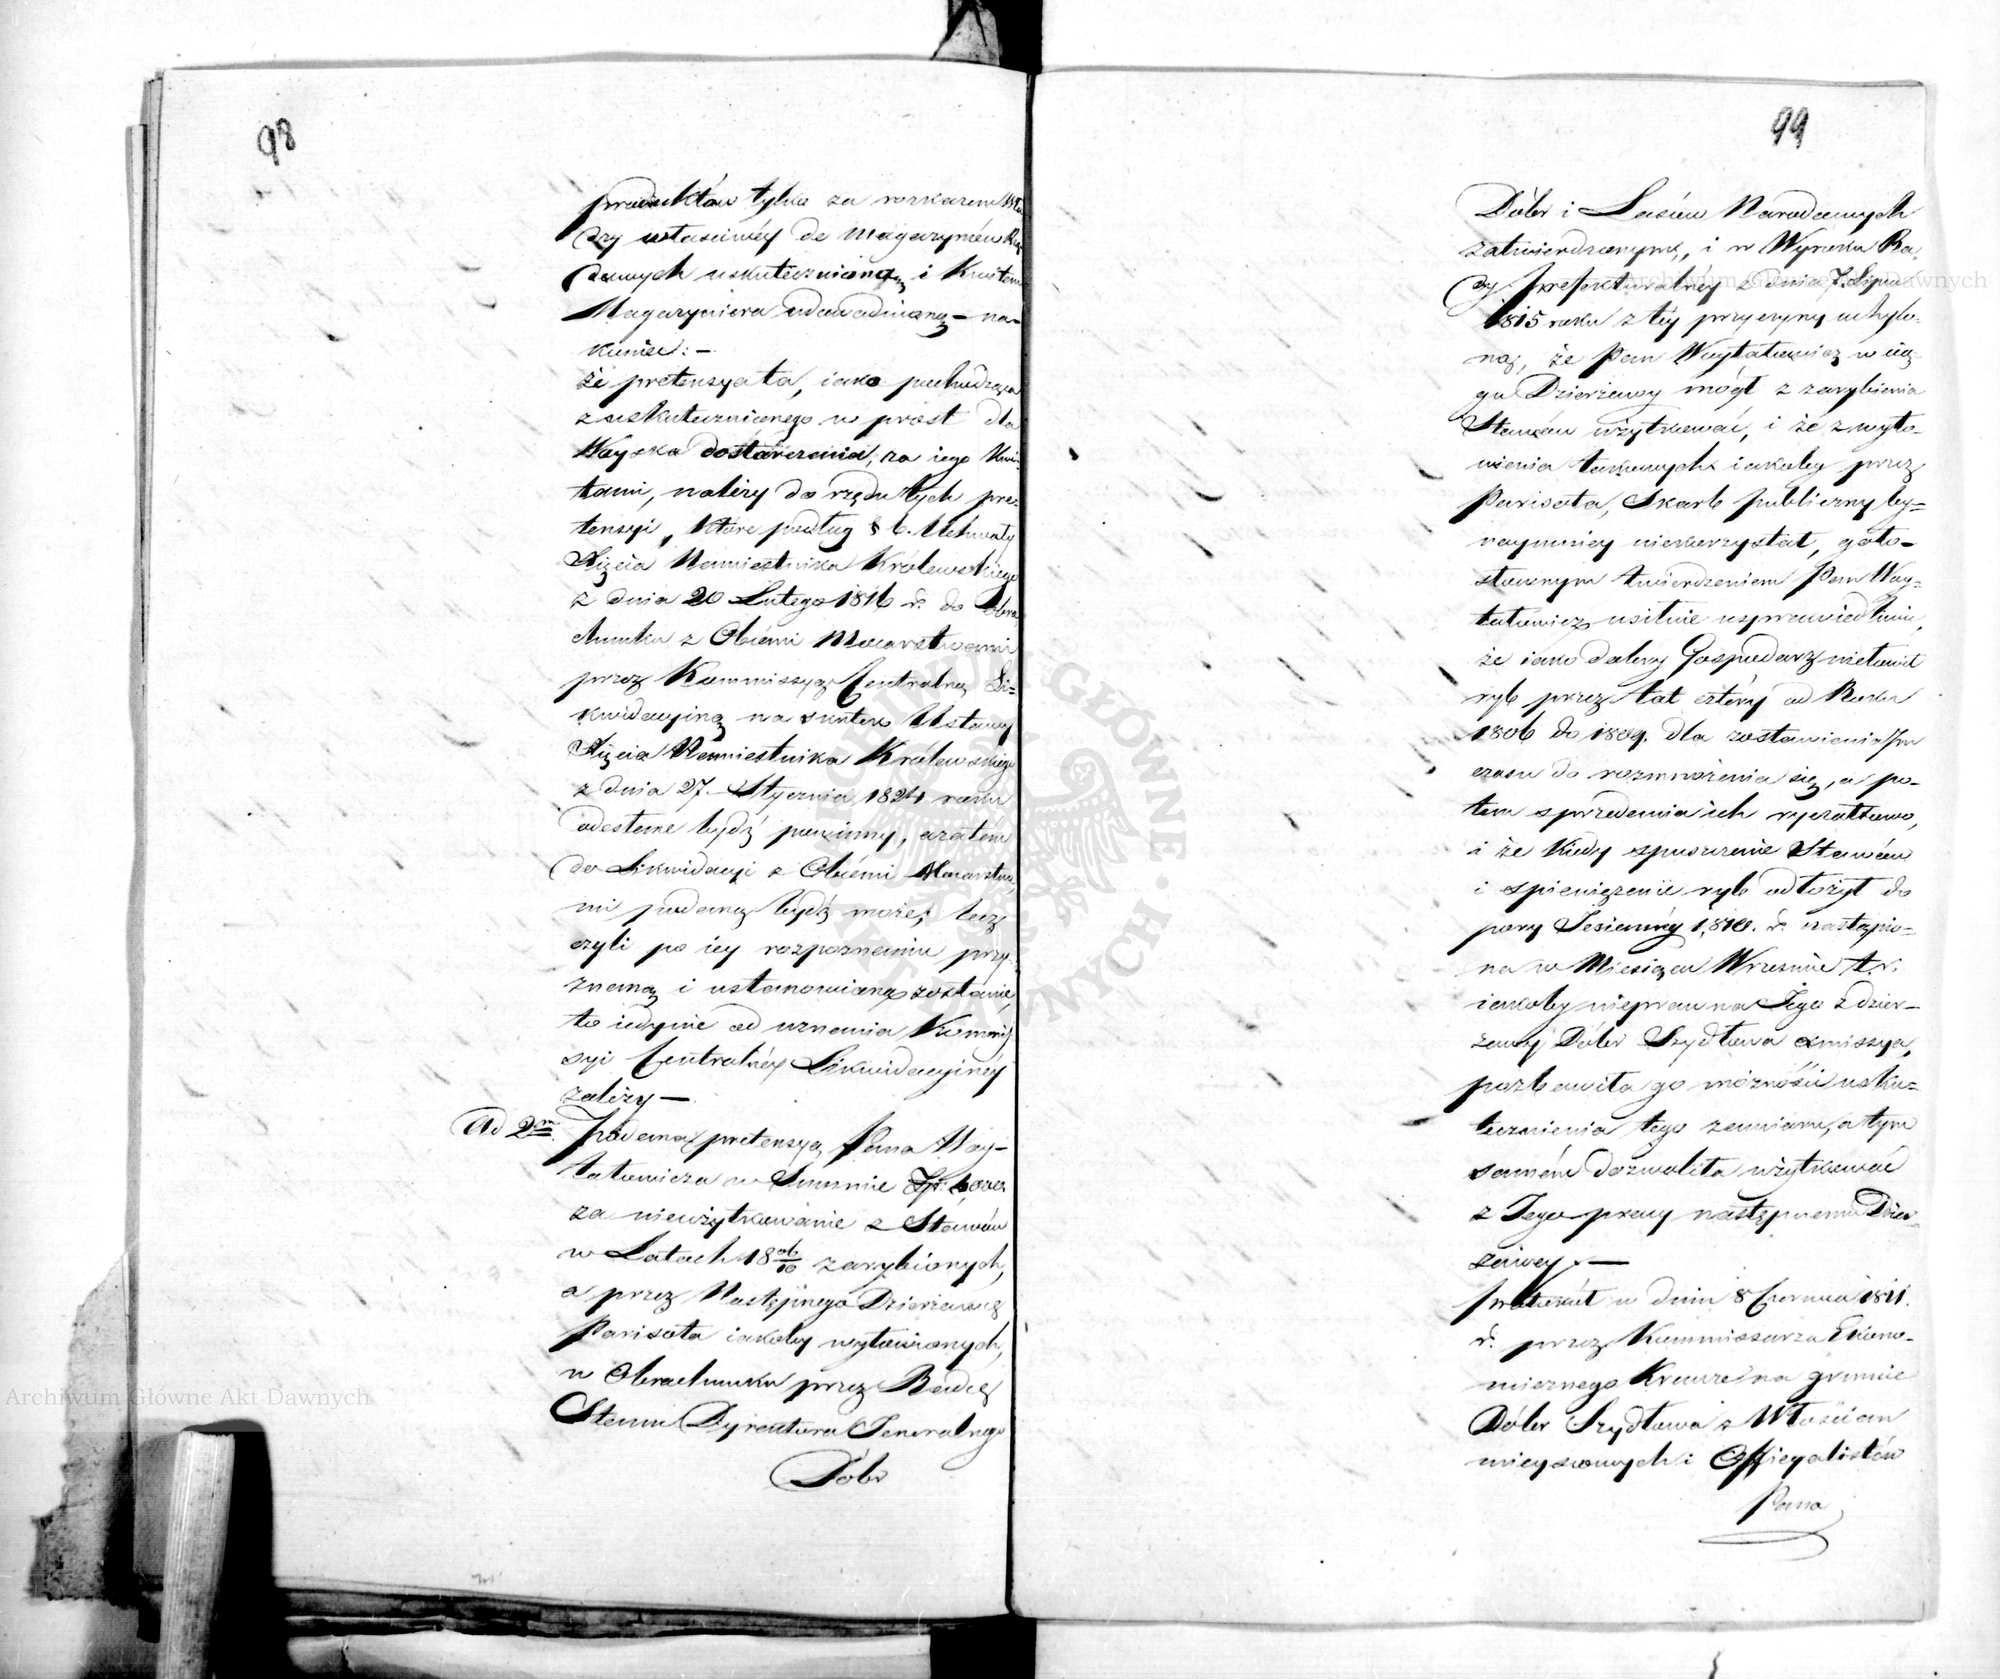 98
produktów tylko za rozkazem Wła
dzy właściwéy do Magazynów Rzą
dowych uskutecznioną i Kwitem
Magazyniera udowodnioną – na-
koniec: –
że pretensya ta, iako pochodząca
z uskutecznionego w prost dla
Woyska dostarczenia, za iego Kwi-
tami, należy do rzędu tych pre-
tensyi, które podług § 6. Uchwały
Xięcia Namiestnika Królewskiego
z dnia 20 Lutego 1816 r. do Obra
chunku z Obcemi Mocarstwami
przez Kommissyą Centralną Li-
kwidacyiną na skutek Ustawy
Xięcia Namiestnika Królewskiego
z dnia 27. Stycznia 1824 roku
odesłane bydź powinny, a zatem
do Likwidacyi z Obcemi Mocarstwa
mi podaną bydź może; lecz
czyli po iey rozpoznaniu przy
znaną i ustanowioną zostanie,
to iedynie od uznania Kommis
syi Centralnéy Likwidacyinéy
zależy –
Ad 2m Podana pretensya Pana Woy-
tatowicza w Summie Zł: 4,000
za nieużytkowanie z Stawów
w Latach 18 06/10 zarybionych,
a przez Następnego Dzierżawcę
Parisota iakoby wyłowionych,
w Obrachunku przez Radcę
Stanu Dyrektora Generalnego
Dóbr
99
Dóbr i Lasów Narodowych
zatwierdzonym, i w Wyroku Ra
dy Prefekturalney z dnia 7. Lipca
1815 roku z téy przyczyny uchylo-
ną, że Pan Woytatowicz w cią-
gu Dzierżawy mógł z zarybienia
Stawów użytkować, i że z wyło-
wienia takowych iakoby przez
Parisota, Skarb publiczny by-
naymniey niekorzystał, goło-
słownym twierdzeniem Pan Woy-
tatowicz usilnie usprawiedliwia,
że iako dobry Gospodarz niełowił
ryb przez lat cztery od Roku
1806 do 1809. dla zostawienia Im
czasu do rozmnożenia się, a po-
tem sprzedania ich ryczałtowo,
i że kiedy spuszczenie Stawów
i spieniężenie ryb odłożył do
pory Jesiennéy 1,810. r. nastąpio-
na w Miesiącu Wrześniu t. r.
iakoby nieprawna Jego z dzier-
żawy Dóbr Szydłowa exmissya,
pozbawiła go możności usku-
tecznienia tego zamiaru, a tym
samém dozwoliła użytkować
z Jego pracy następnemu Dzier-
żawcy. –
Protokół w dniu 8 Czerwca 1811.
r. przez Kommissarza Ekono-
micznego Krauze na gruncie
Dóbr Szydłowa z Włościan
mieyscowych i Officyalistów
Pana